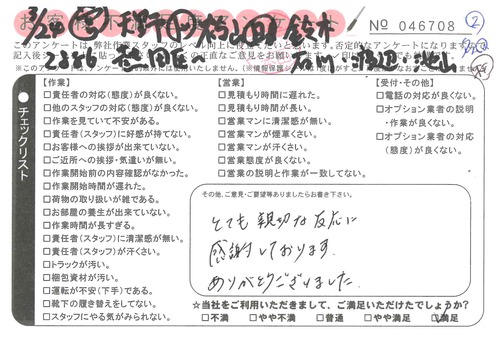 № 046708 ②
3/24
鈴木
このアンケートは、弊社作業スタッフのレベル向上に
チェックリスト
【作業】
□責任者の対応(態度)が良くない。
□他のスタッフの対応(態度)が良くない。
□作業を見ていて不安がある。
□責任者(スタッフ)に好感が持てない。
□お客様への挨拶が出来ていない。
□ご近所への挨拶・気遣いが無い。
□作業開始前の内容確認がなかった。
□作業開始時間が遅れた。
□荷物の取り扱いが雑である。
□お部屋の養生が出来ていない。
□作業時間が長すぎる。
□責任者(スタッフ)に清潔感が無い。
□責任者(スタッフ)が汗くさい。
□トラックが汚い。
□梱包資材が汚い。
□運転が不安(下手)である。
□靴下の履き替えをしてない。
□スタッフにやる気がみられない。
【営業】
□見積もり時間に遅れた。
□見積もり時間が長い。
□営業マンに清潔感が無い。
□営業マンが煙草くさい。
□営業マンが汗くさい。
□営業態度が良くない。
□営業の説明と作業が一致してない。
【受付・その他】
□電話の対応が良くない。
□オプション業者の説明
・作業が良くない。
□オプション業者の対応
(態度)が良くない。
その他、ご意見・ご要望等ありましたらお書き下さい。
とても親切な反応に
感謝しております。
ありがとうございました
☆当社をご利用いただきまして、ご満足いただけたでしょうか?
□不満 □やや不満 □普通 □やや満足 満足